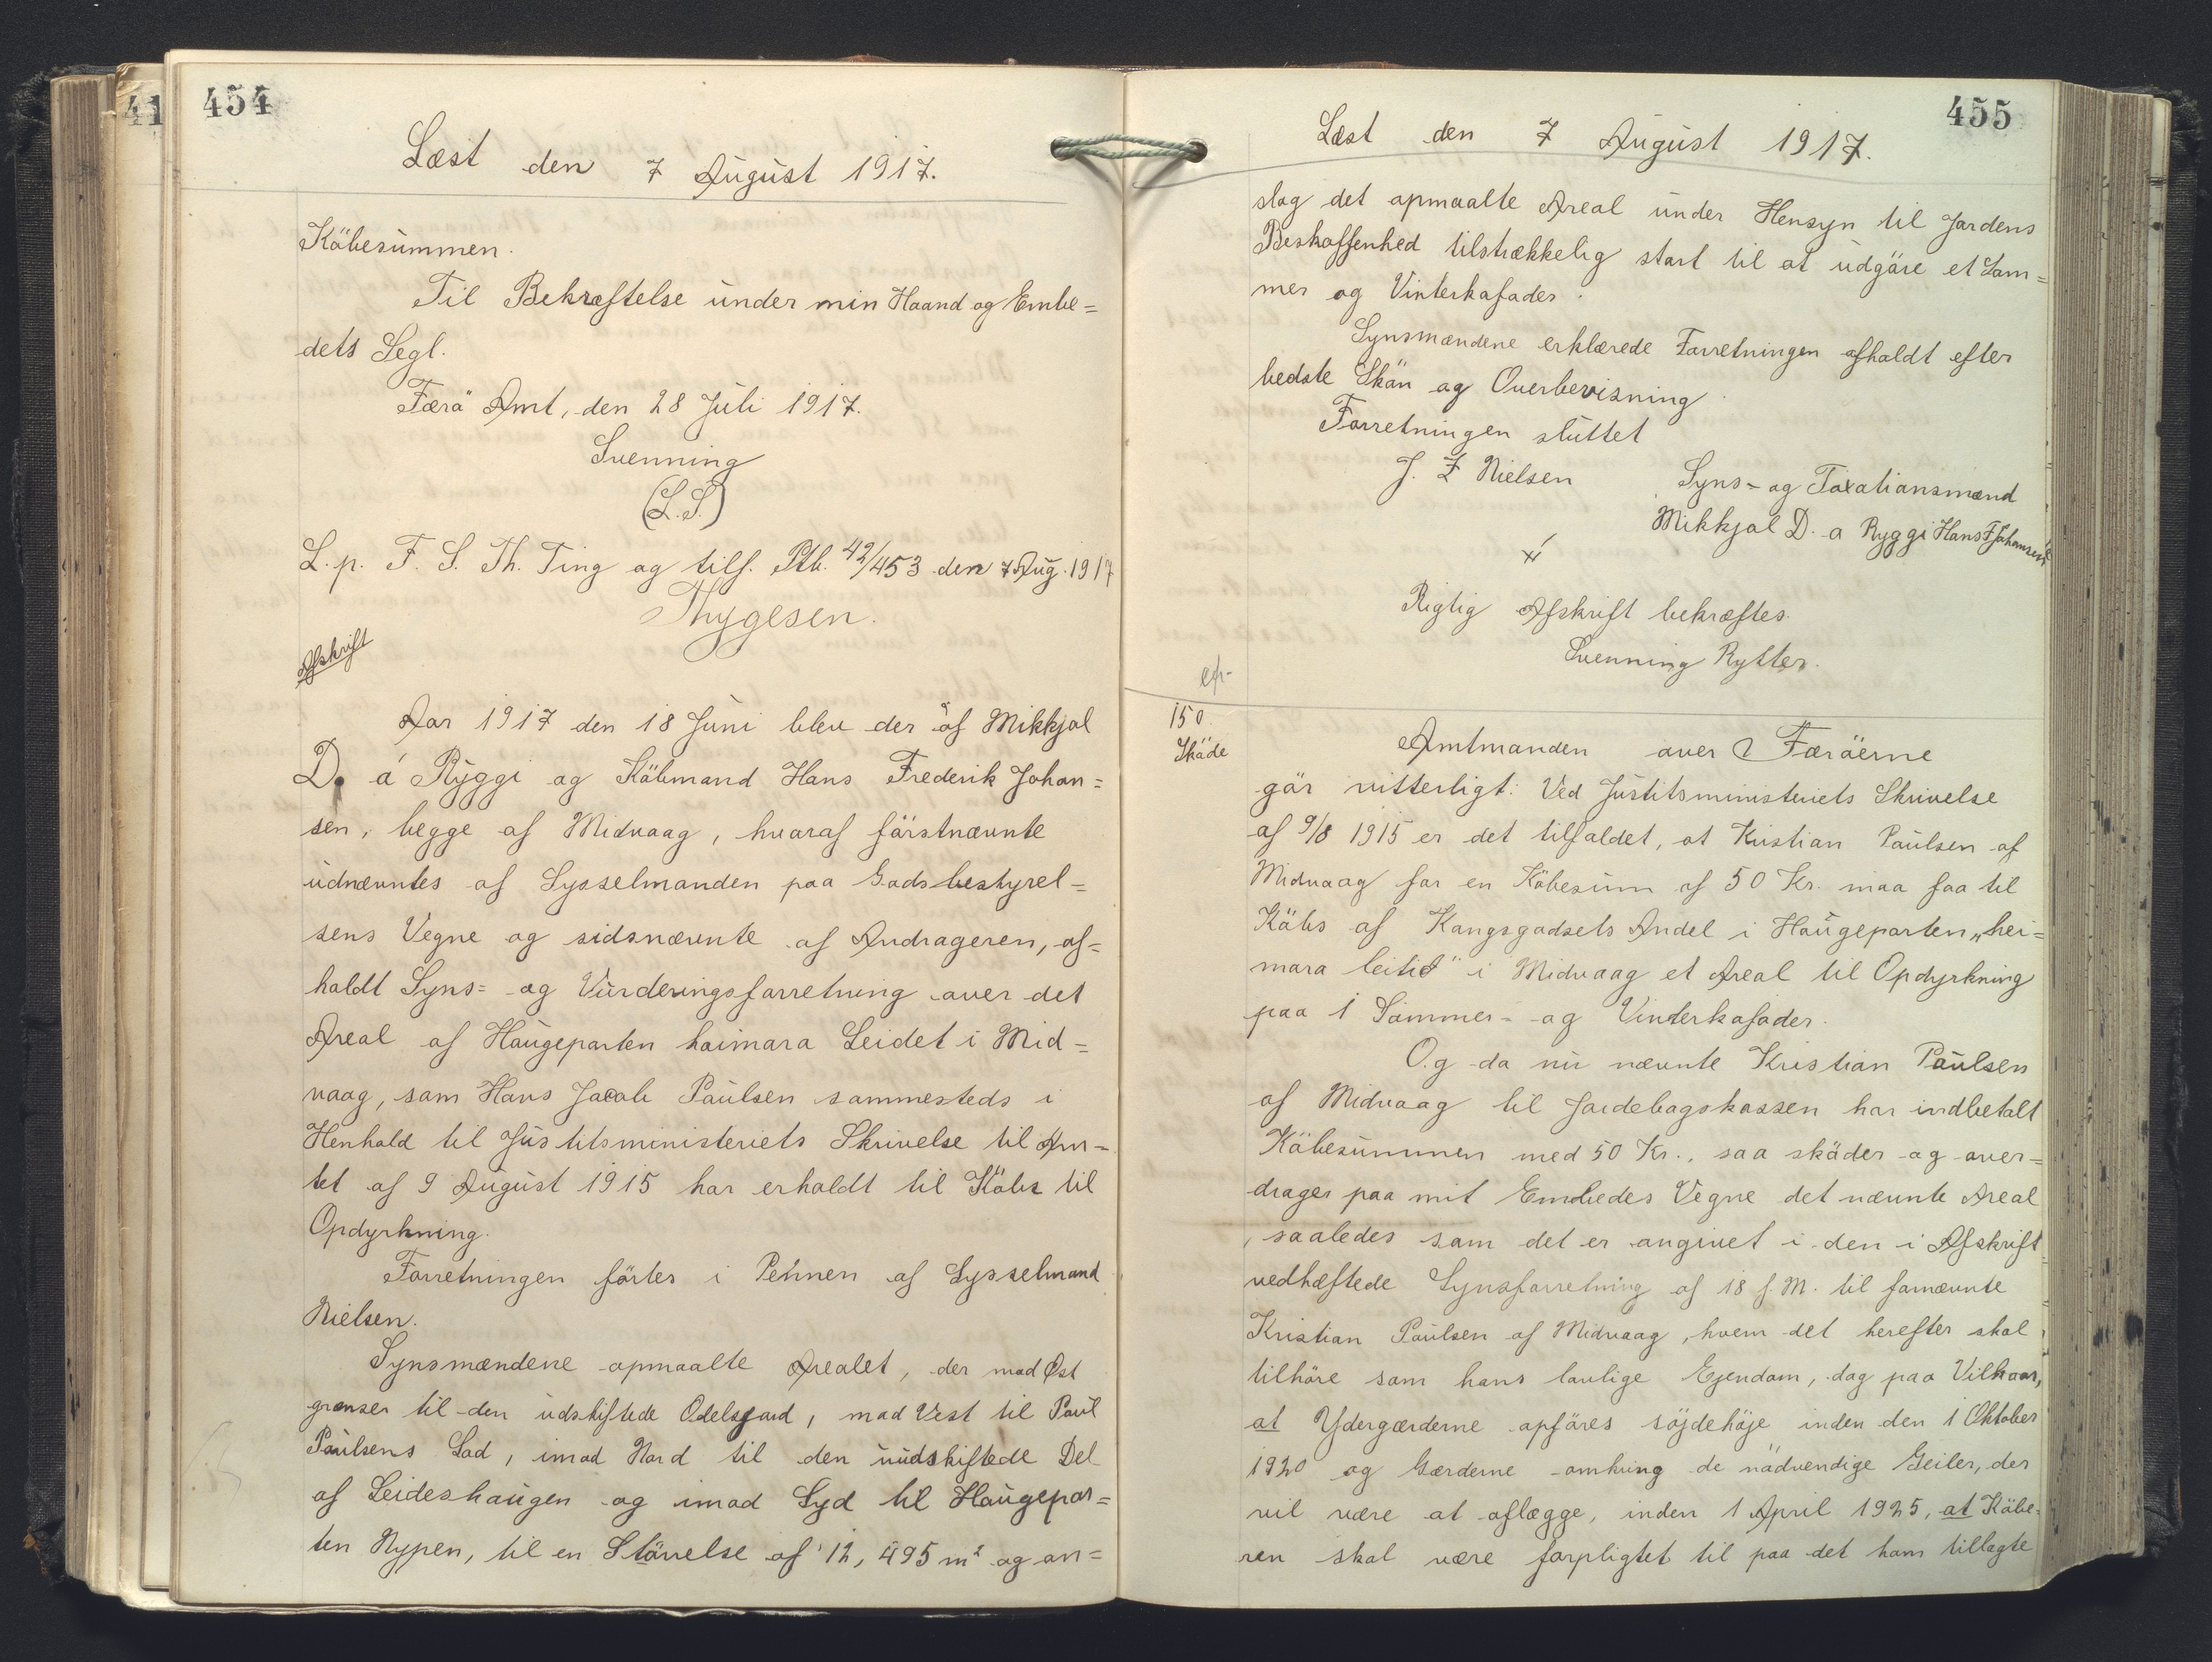 454
Læst den 7 August 1917.
Köbesummen.
Til Bekræftelse under min Haand og Embe=
dets Segl.
Færö Amt, den 28 Juli 1917.
Svenning
(L.S.)
L. p. F. S. Th. Ting og tilf. Ptb. 42/453 den 7 Aug. 1917
Thygesen.
Afskrift
Aar 1917 den 18 Juni blev der af Mikkjal
D. á Ryggi og Köbmand Hans Frederik Johan=
sen, begge af Midvaag, hvoraf förstnævnte
udnævntes af Sysselmanden paa Godsbestyrel=
sens Vegne og sidsnævnte af Andrageren, af=
holdt Syns= og Vurderingsforretning over det
Areal af Haugeparten haimara Leidet i Mid=
vaag, som Hans Jacob Paulsen sammesteds i
Henhold til Justitsministeriets Skrivelse til Am=
tet af 9 August 1915 har erholdt til Köbs til
Opdyrkning.
Forretningen förtes i Pennen af Sysselmand
Nielsen.
Synsmændene opmaalte Arealet, der mod Øst
grænser til den udskiftede Odelsjord, mod Vest til Poul
Paulsens Lod, imod Nord til den uudskiftede Del
af Leideshaugen og imod Syd til Haugepar=
ten Nypen, til en Störrelse af 12,495 m² og an=
455
Læst den 7 August 1917.
slog det opmaalte Areal under Hensyn til Jordens
Beskaffenhed tilstrækkelig stort til at udgöre et Som=
mer og Vinterkofoder.
Synsmændene erklærede Forretningen afholdt efter
bedste Skön og Overbevisning.
Forretningen sluttet
J. F Nielsen Syns- og Taxationsmænd
Mikkjal D. a Ryggi Hans F Johansen
Rigtig Afskrift bekræftes.
Svenning Rytter.
150.
Sköde
Amtmanden over Færöerne
gör vitterligt: Ved Justitsministeriets Skrivelse
af 9/8 1915 er det tilfaldet, at Kristian Paulsen af
Midvaag for en Köbesum af 50 Kr. maa faa til
Köbs af Kongsgodsets Andel i Haugeparten „hei=
mara leitið" i Midvaag et Areal til Opdyrkning
paa 1 Sommer- og Vinterkofoder.
Og da nu nævnte Kristian Paulsen
af Midvaag til Jordebogskassen har indbetalt
Köbesummen med 50 Kr., saa sköder og over=
drager paa mit Embedes Vegne det nævnte Areal
, saaledes som det er angivet i den i Afskrift
vedhæftede Synsforretning af 18 f. M. til fornævnte
Kristian Paulsen af Midvaag, hvem det herefter skal
tilhöre som hans lovlige Ejendom, dog paa Vilkaar,
at Ydergærderne opföres söjdehöje inden den 1 Oktober
1920 og Gærderne omkring de nödvendige Geiler, der
vil være at aflægge, inden 1 April 1925, at Köbe=
ren skal være forpligtet til paa det ham tillagte